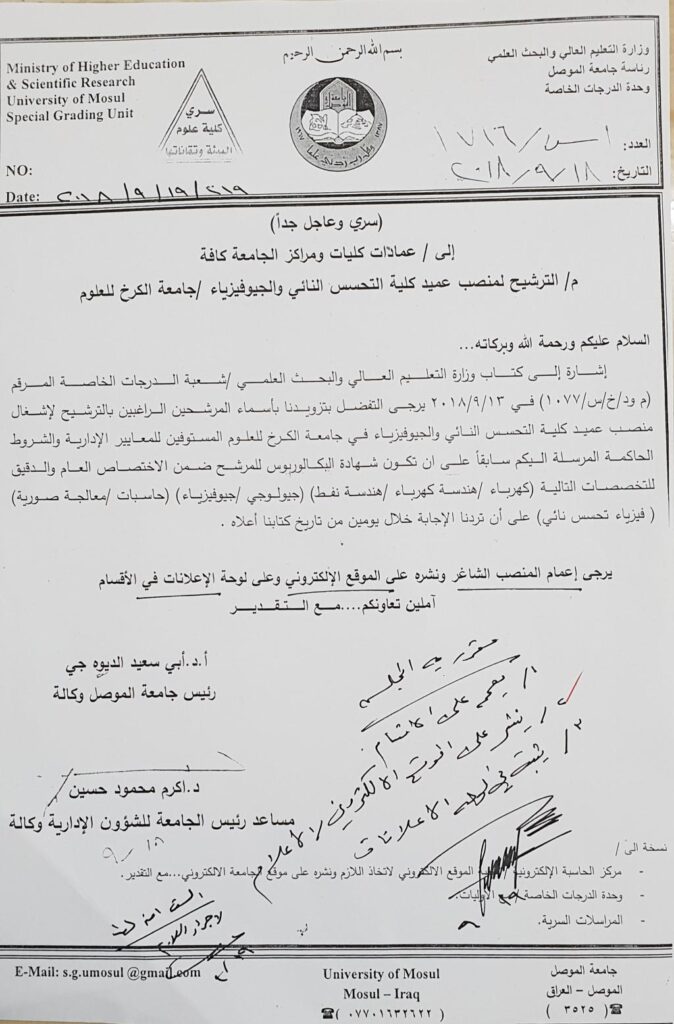 بسم الله الرحمن الرحيم
Ministry of Higher Education
& Scientific Research
University of Mosul
Special Grading Unit
سري
كلية علوم
البيئة وتقاناتها
وزارة التعليم العالي والبحث العلمي
رئاسة جامعة الموصل
وحدة الدرجات الخاصة
العدد: ١٧١٦/
التاريخ: ٢٠١٨/٩/١٨
NO:
Date:
(سري وعاجل جداً)
إلى / عمادات كليات ومراكز الجامعة كافة
م/ الترشيح لمنصب عميد كلية التحسس النائي والجيوفيزياء /جامعة الكرخ للعلوم
السلام عليكم ورحمة الله وبركاته...
إشارة إلى كتاب وزارة التعليم العالي والبحث العلمي /شعبة الدرجات الخاصة المرقم
(م ود/خ/س/١٠٧٧) في ٢٠١٨/٩/١٣ يرجى التفضل بتزويدنا بأسماء المرشحين الراغبين بالترشيح لإشغال
منصب عميد كلية التحسس النائي والجيوفيزياء في جامعة الكرخ للعلوم المستوفين للمعايير الإدارية والشروط
الحاكمة المرسلة اليكم سابقاً على ان تكون شهادة البكالوريوس للمرشح ضمن الاختصاص العام والدقيق
للتخصصات التالية (كهرباء /هندسة كهرباء /هندسة نفط) (جيولوجي /جيوفيزياء) (حاسبات /معالجة صورية)
( فيزياء تحسس نائي) على أن تردنا الإجابة خلال يومين من تاريخ كتابنا أعلاه .
يرجى إعمام المنصب الشاغر ونشره على الموقع الإلكتروني وعلى لوحة الإعلانات في الأقسام
آملين تعاونكم....مع التقدير
أ.د.أبي سعيد الديوه جي
رئيس جامعة الموصل وكالة
مقررية المجلس
١/ يعمم على الاقسام
٢/ ينشر على الموقع الالكتروني / الاعلام
٣/ يثبت في لوحة الاعلانات
د.اكرم محمود حسين
مساعد رئيس الجامعة للشؤون الإدارية وكالة
٩/١٨
نسخة الى/
- مركز الحاسبة الإلكترونية / الموقع الالكتروني لاتخاذ اللازم ونشره على موقع الجامعة الالكتروني...مع التقدير.
- وحدة الدرجات الخاصة مع الأوليات.
- المراسلات السرية.
لاجراء اللازم
E-Mail: s.g.umosul @gmail.com
University of Mosul
Mosul – Iraq
☎( ٠٧٧٠١٦٣٢٦٢٢ )
جامعة الموصل
الموصل – العراق
☎( ٣٥٢٥ )